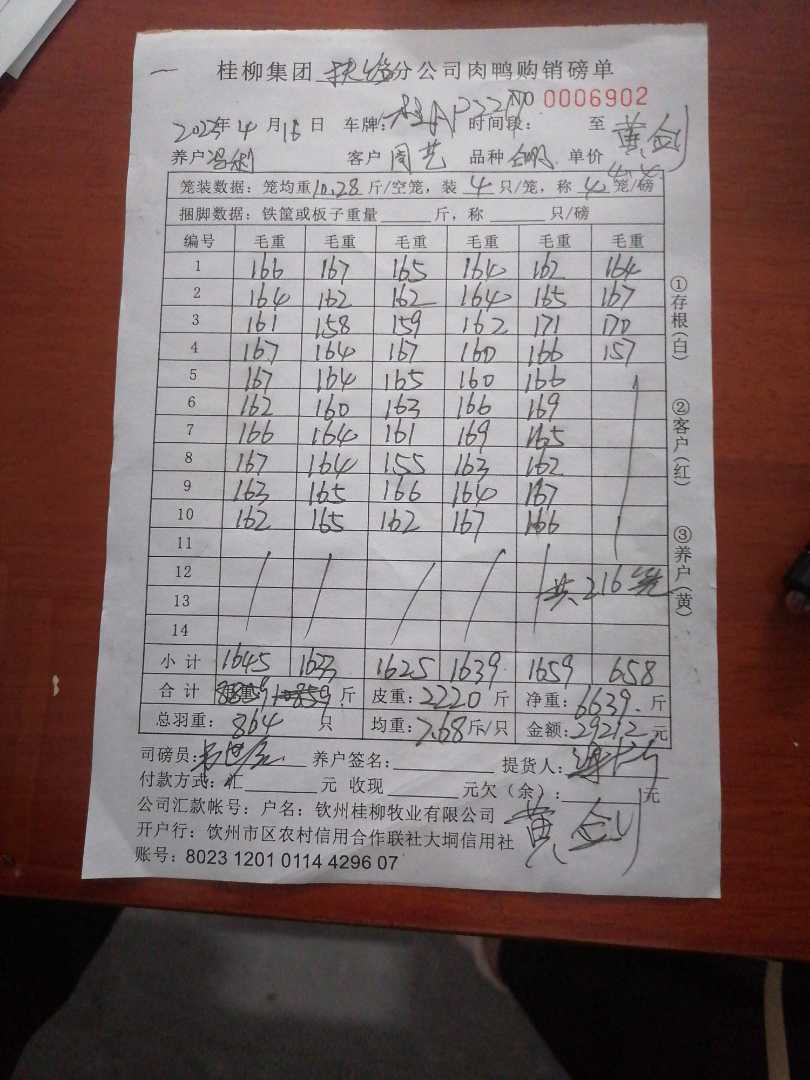 桂柳集团 扶绥 分公司肉鸭购销磅单
NO 0006902
2023年 4 月 16 日 车牌: 时间段: 至 黄剑
养户 客户 周艺 品种 单价 4.4
笼装数据: 笼均重 10.28 斤/空笼, 装 4 只/笼, 称 4 笼/磅
捆脚数据: 铁筐或板子重量 斤, 称 只/磅
编号 毛重 毛重 毛重 毛重 毛重 毛重
1 166 167 165 164 162 164
2 164 162 162 164 165 167
3 161 158 159 162 171 170
4 167 164 167 160 166 157
5 167 164 165 160 166
6 162 160 163 166 169
7 166 164 161 169 165
8 167 164 155 163 162
9 163 165 166 164 167
10 162 165 162 167 166
11
12 共216笼
13
14
小计 1645 1633 1625 1639 1659 658
合计 8859 斤 皮重: 2220 斤 净重: 6639. 斤
总羽重: 864 只 均重: 7.68 斤/只 金额: 29212 元
司磅员: 养户签名: 提货人:
付款方式: 汇 元 收现 元欠(余): 元
公司汇款帐号: 户名: 钦州桂柳牧业有限公司 黄剑
开户行: 钦州市区农村信用合作联社大垌信用社
账号: 8023 1201 0114 4296 07
①存根(白) ②客户(红) ③养户(黄)